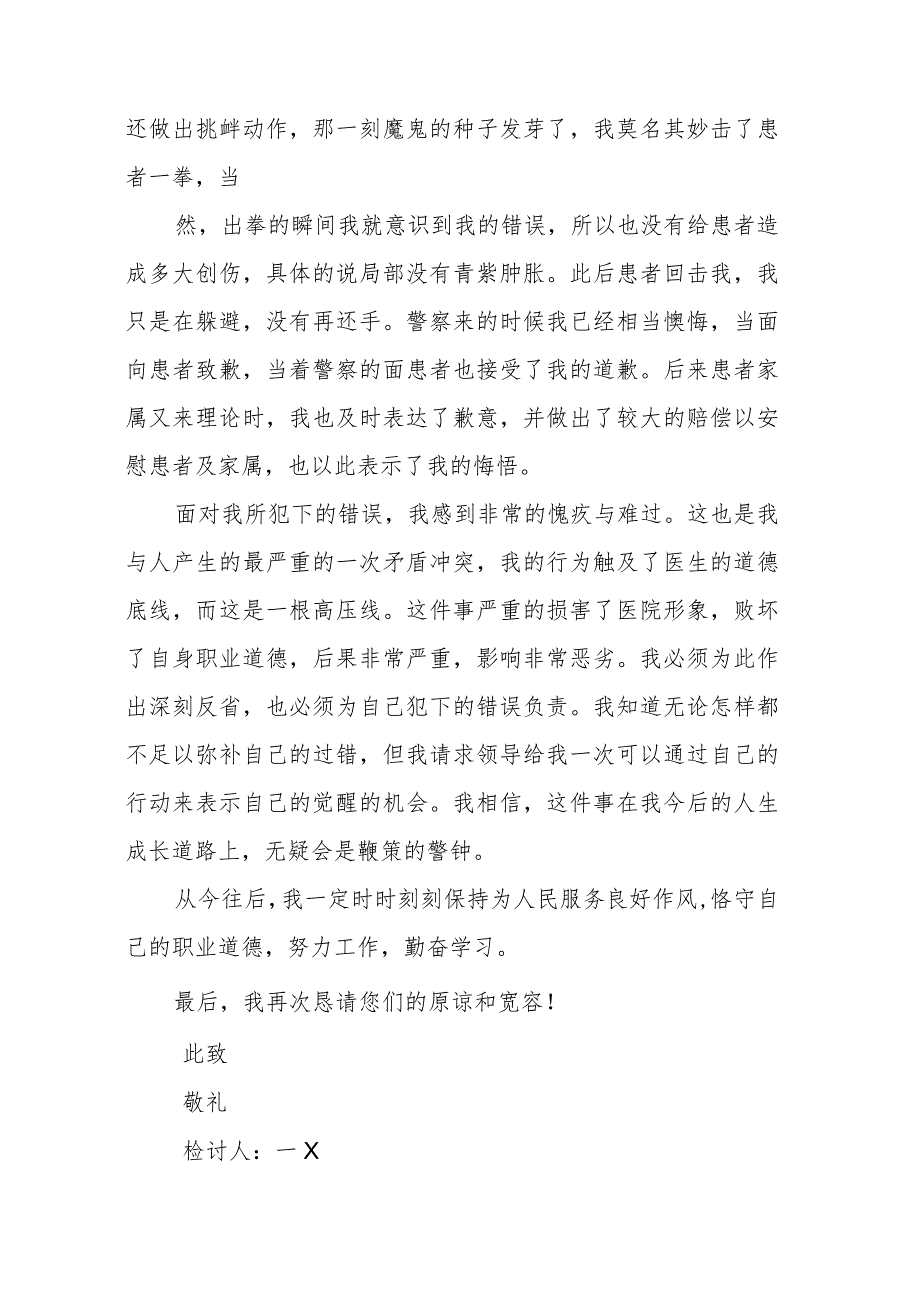 还做出挑衅动作，那一刻魔鬼的种子发芽了，我莫名其妙击了患
者一拳，当
然，出拳的瞬间我就意识到我的错误，所以也没有给患者造
成多大创伤，具体的说局部没有青紫肿胀。此后患者回击我，我
只是在躲避，没有再还手。警察来的时候我已经相当懊悔，当面
向患者致歉，当着警察的面患者也接受了我的道歉。后来患者家
属又来理论时，我也及时表达了歉意，并做出了较大的赔偿以安
慰患者及家属，也以此表示了我的悔悟。
面对我所犯下的错误，我感到非常的愧疚与难过。这也是我
与人产生的最严重的一次矛盾冲突，我的行为触及了医生的道德
底线，而这是一根高压线。这件事严重的损害了医院形象，败坏
了自身职业道德，后果非常严重，影响非常恶劣。我必须为此作
出深刻反省，也必须为自己犯下的错误负责。我知道无论怎样都
不足以弥补自己的过错，但我请求领导给我一次可以通过自己的
行动来表示自己的觉醒的机会。我相信，这件事在我今后的人生
成长道路上，无疑会是鞭策的警钟。
从今往后,我一定时时刻刻保持为人民服务良好作风,恪守自
己的职业道德，努力工作，勤奋学习。
最后，我再次恳请您们的原谅和宽容！
此致
敬礼
检讨人：一X